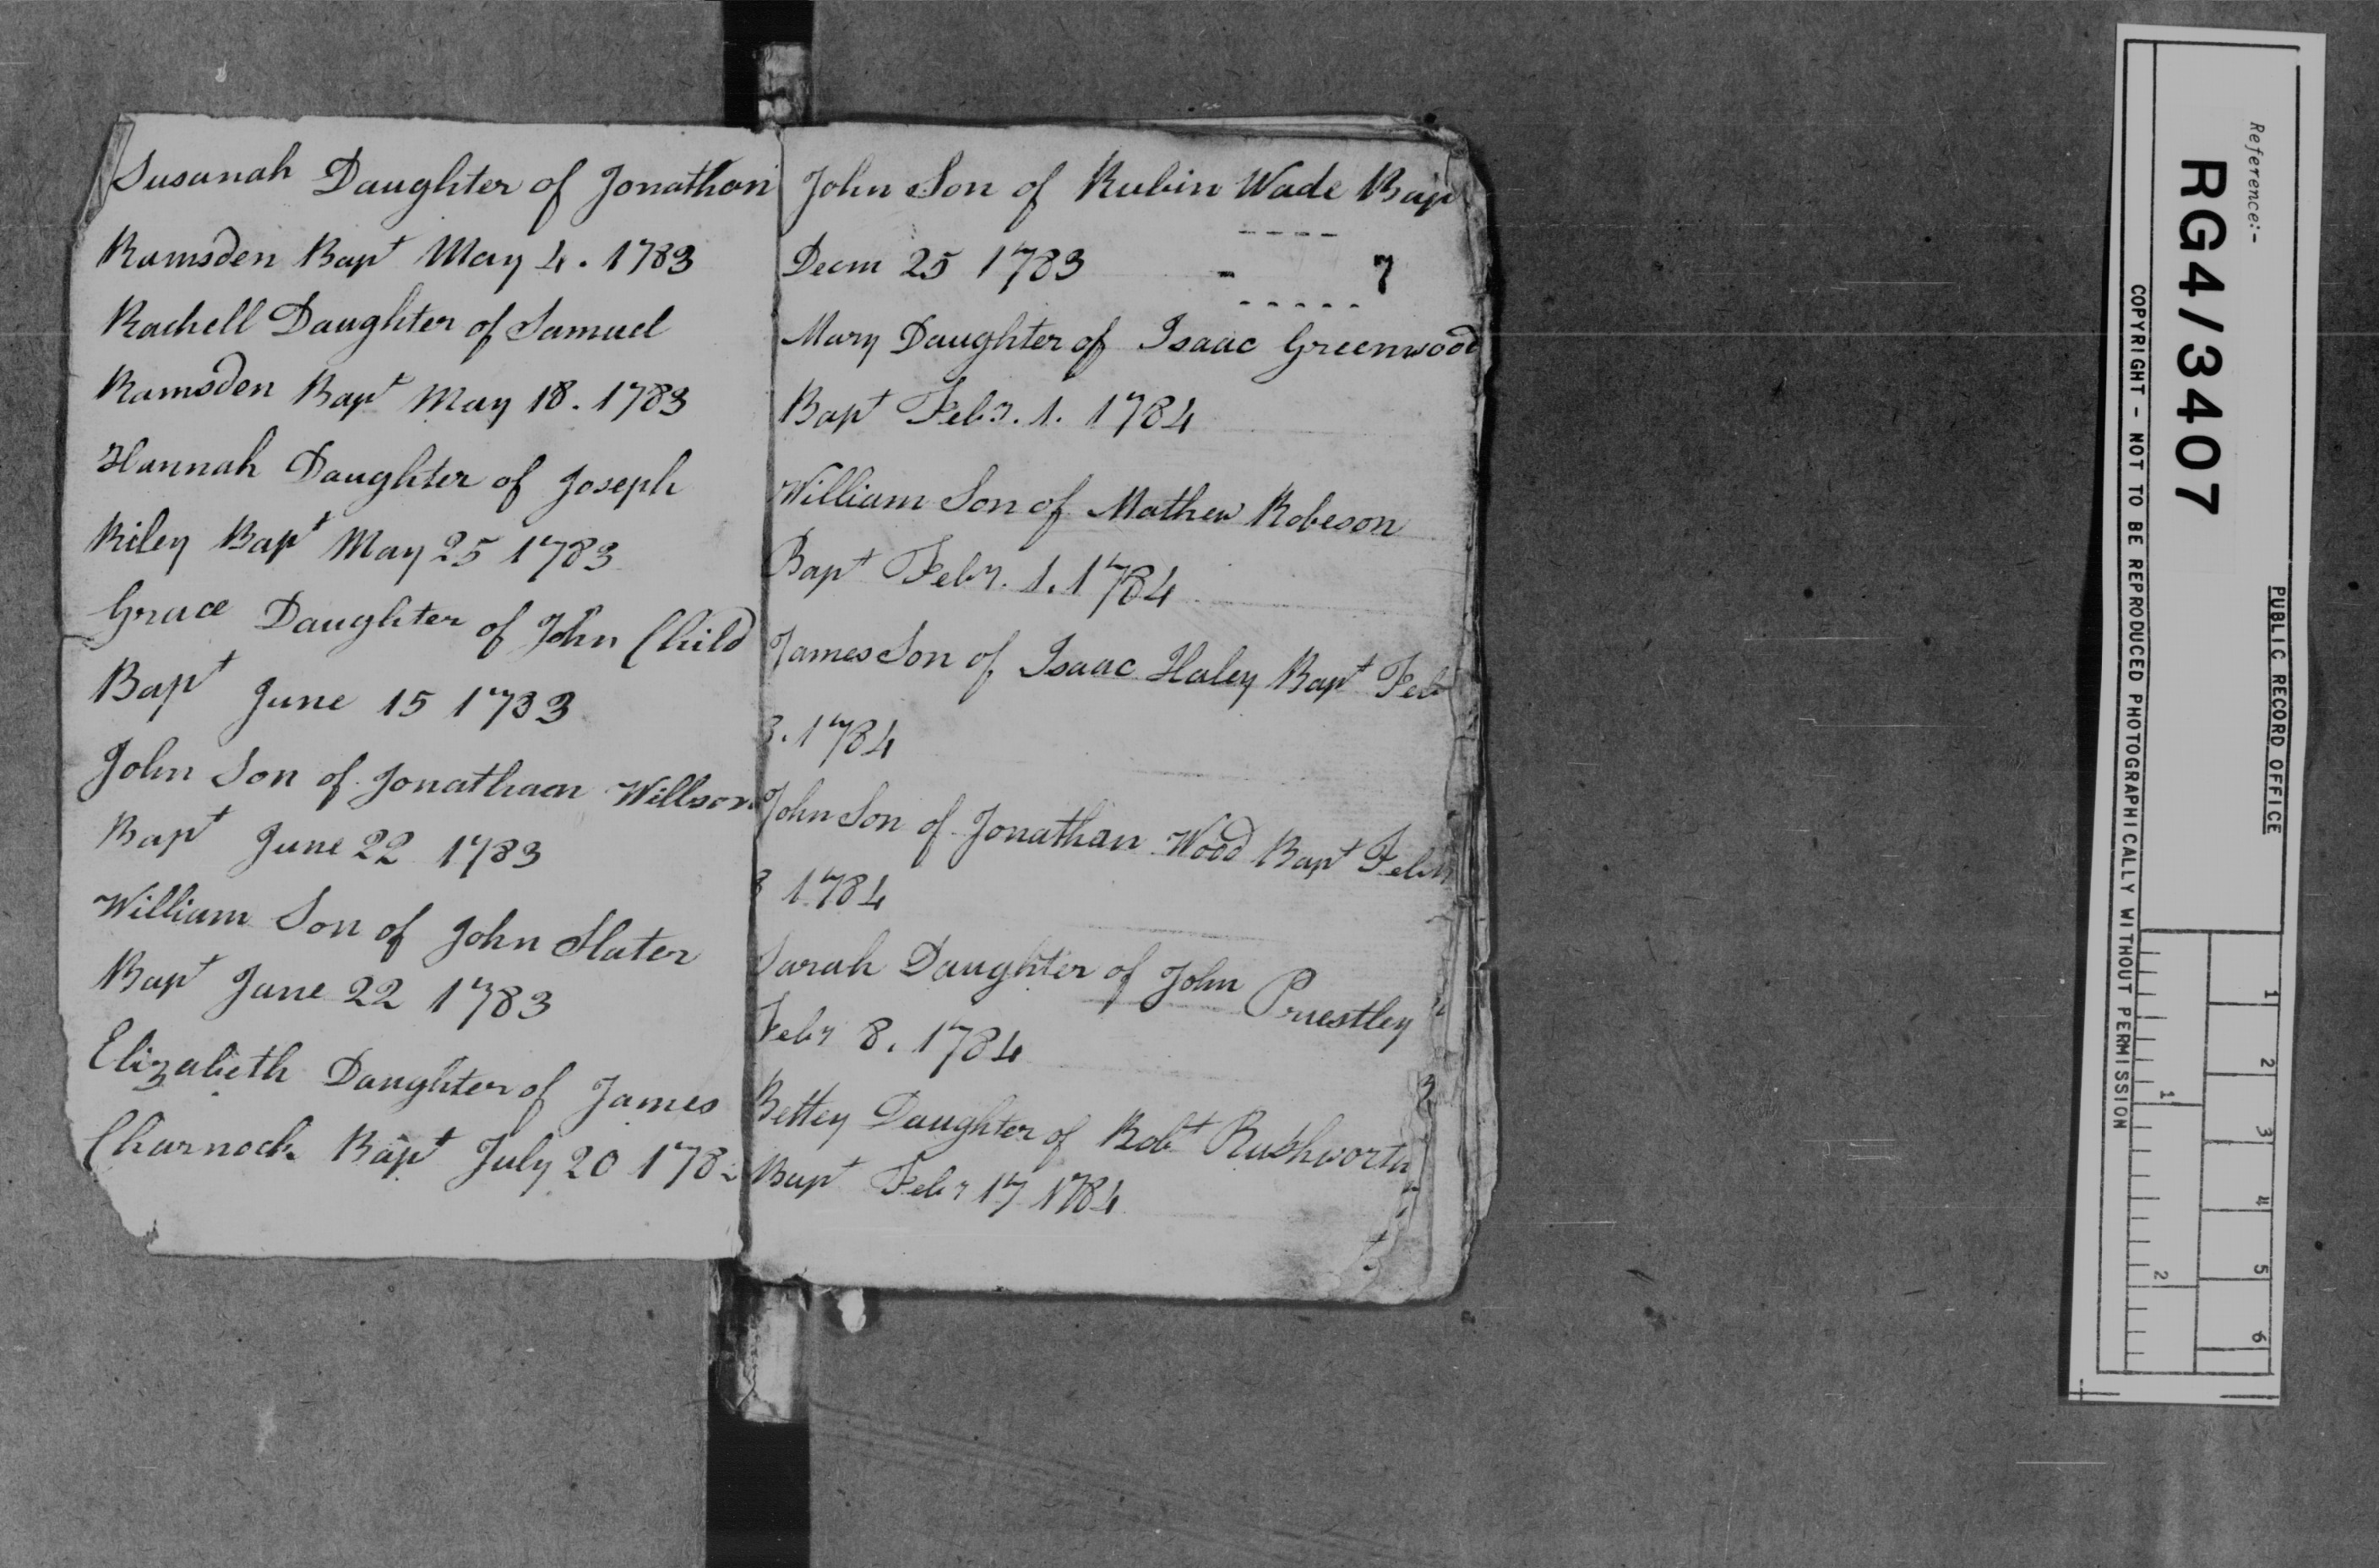 Susanah Daughter of Jonathan
Ramsden Bapt May 4. 1783
Rachell Daughter of Samuel
Ramsden Bapt May 18. 1783
Hannah Daughter of Joseph
Riley Bapt May 25 1783
Grace Daughter of John Child
Bapt June 15 1783
John Son of Jonathan Willson
Bapt June 22 1783
William Son of John Slater
Bapt June 22 1783
Elizabeth Daughter of James
Charnock Bapt July 20 178
John Son of Rubin Wade Bap
Decm 25 1783 - 7
Mary Daughter of Isaac Greenwood
Bapt Febr. 1. 1784
William Son of Mathew Robeson
Bapt Febr. 1. 1784
James Son of Isaac Haley Bapt Feb
3. 1784
John Son of Jonathan Wood Bapt Febr
8 1784
Sarah Daughter of John Priestley
Febr 8. 1784
Bettey Daughter of Robt Rushworth
Bapt Febr 17 1784
PUBLIC RECORD OFFICE
Reference:-
RG4/3407
COPYRIGHT - NOT TO BE REPRODUCED PHOTOGRAPHICALLY WITHOUT PERMISSION
1 2 3 4 5 6
1 2